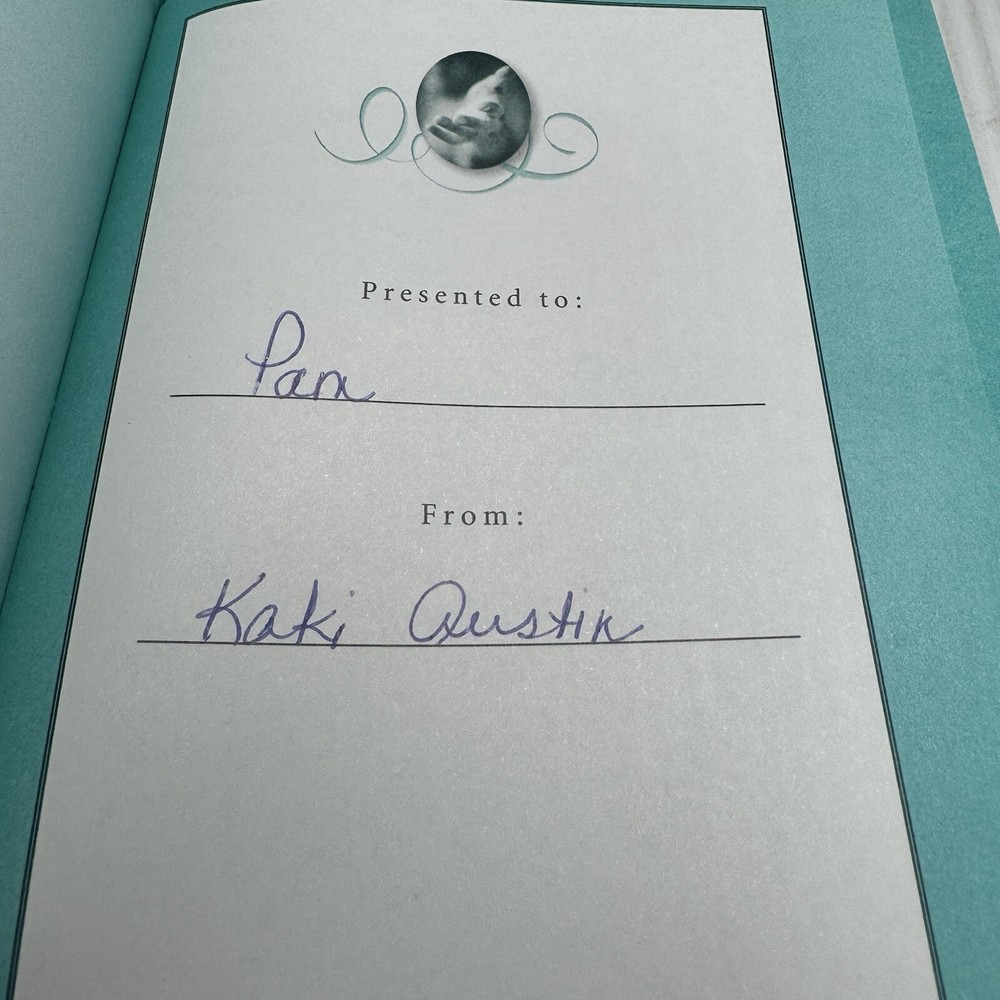 Presented to:
Pam
From:
Kaki Austin